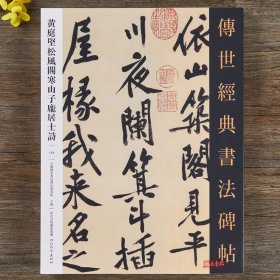 傳世經典書法碑帖
依山築閣見平
川夜闌箕斗插
屋椽我來名之
黄庭堅松風閣寒山子龐居士詩